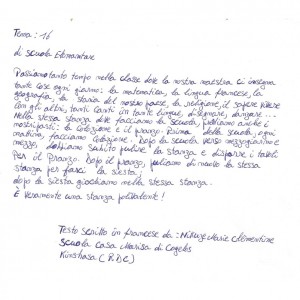 Tema: 16
di scuola Elementare
Passiamo tanto tempo nella classe dove la nostra maestra ci insegna
tante cose ogni giorno: la matematica, la lingua francese, la
geografia, la storia del nostro paese, la religione, il sapere vivere
con gli altri, tanti canti in tante lingue, disegnare, danzare...
Nella stessa stanza dove facciamo di scuola, pubbiamo anche i
nostri pasti: la colazione e il pranzo. Prima della scuola, ogni
mattino facciamo colazione. Dopo la scuola verso mezzogiorno e
mezzo, dobbiamo subito pulire la stanza e disporre i tavoli
Per il Pranzo. Dopo il pranzo, puliamo di nuovo la stessa
stanza per farci la siesta.
dopo la siesta giochiamo nella stessa stanza.
È veramente una stanza polivalente!
Testo scritto in francese da: Marie Clémentine
Scuola casa Marisa di
Kinshasa (R.D.C)